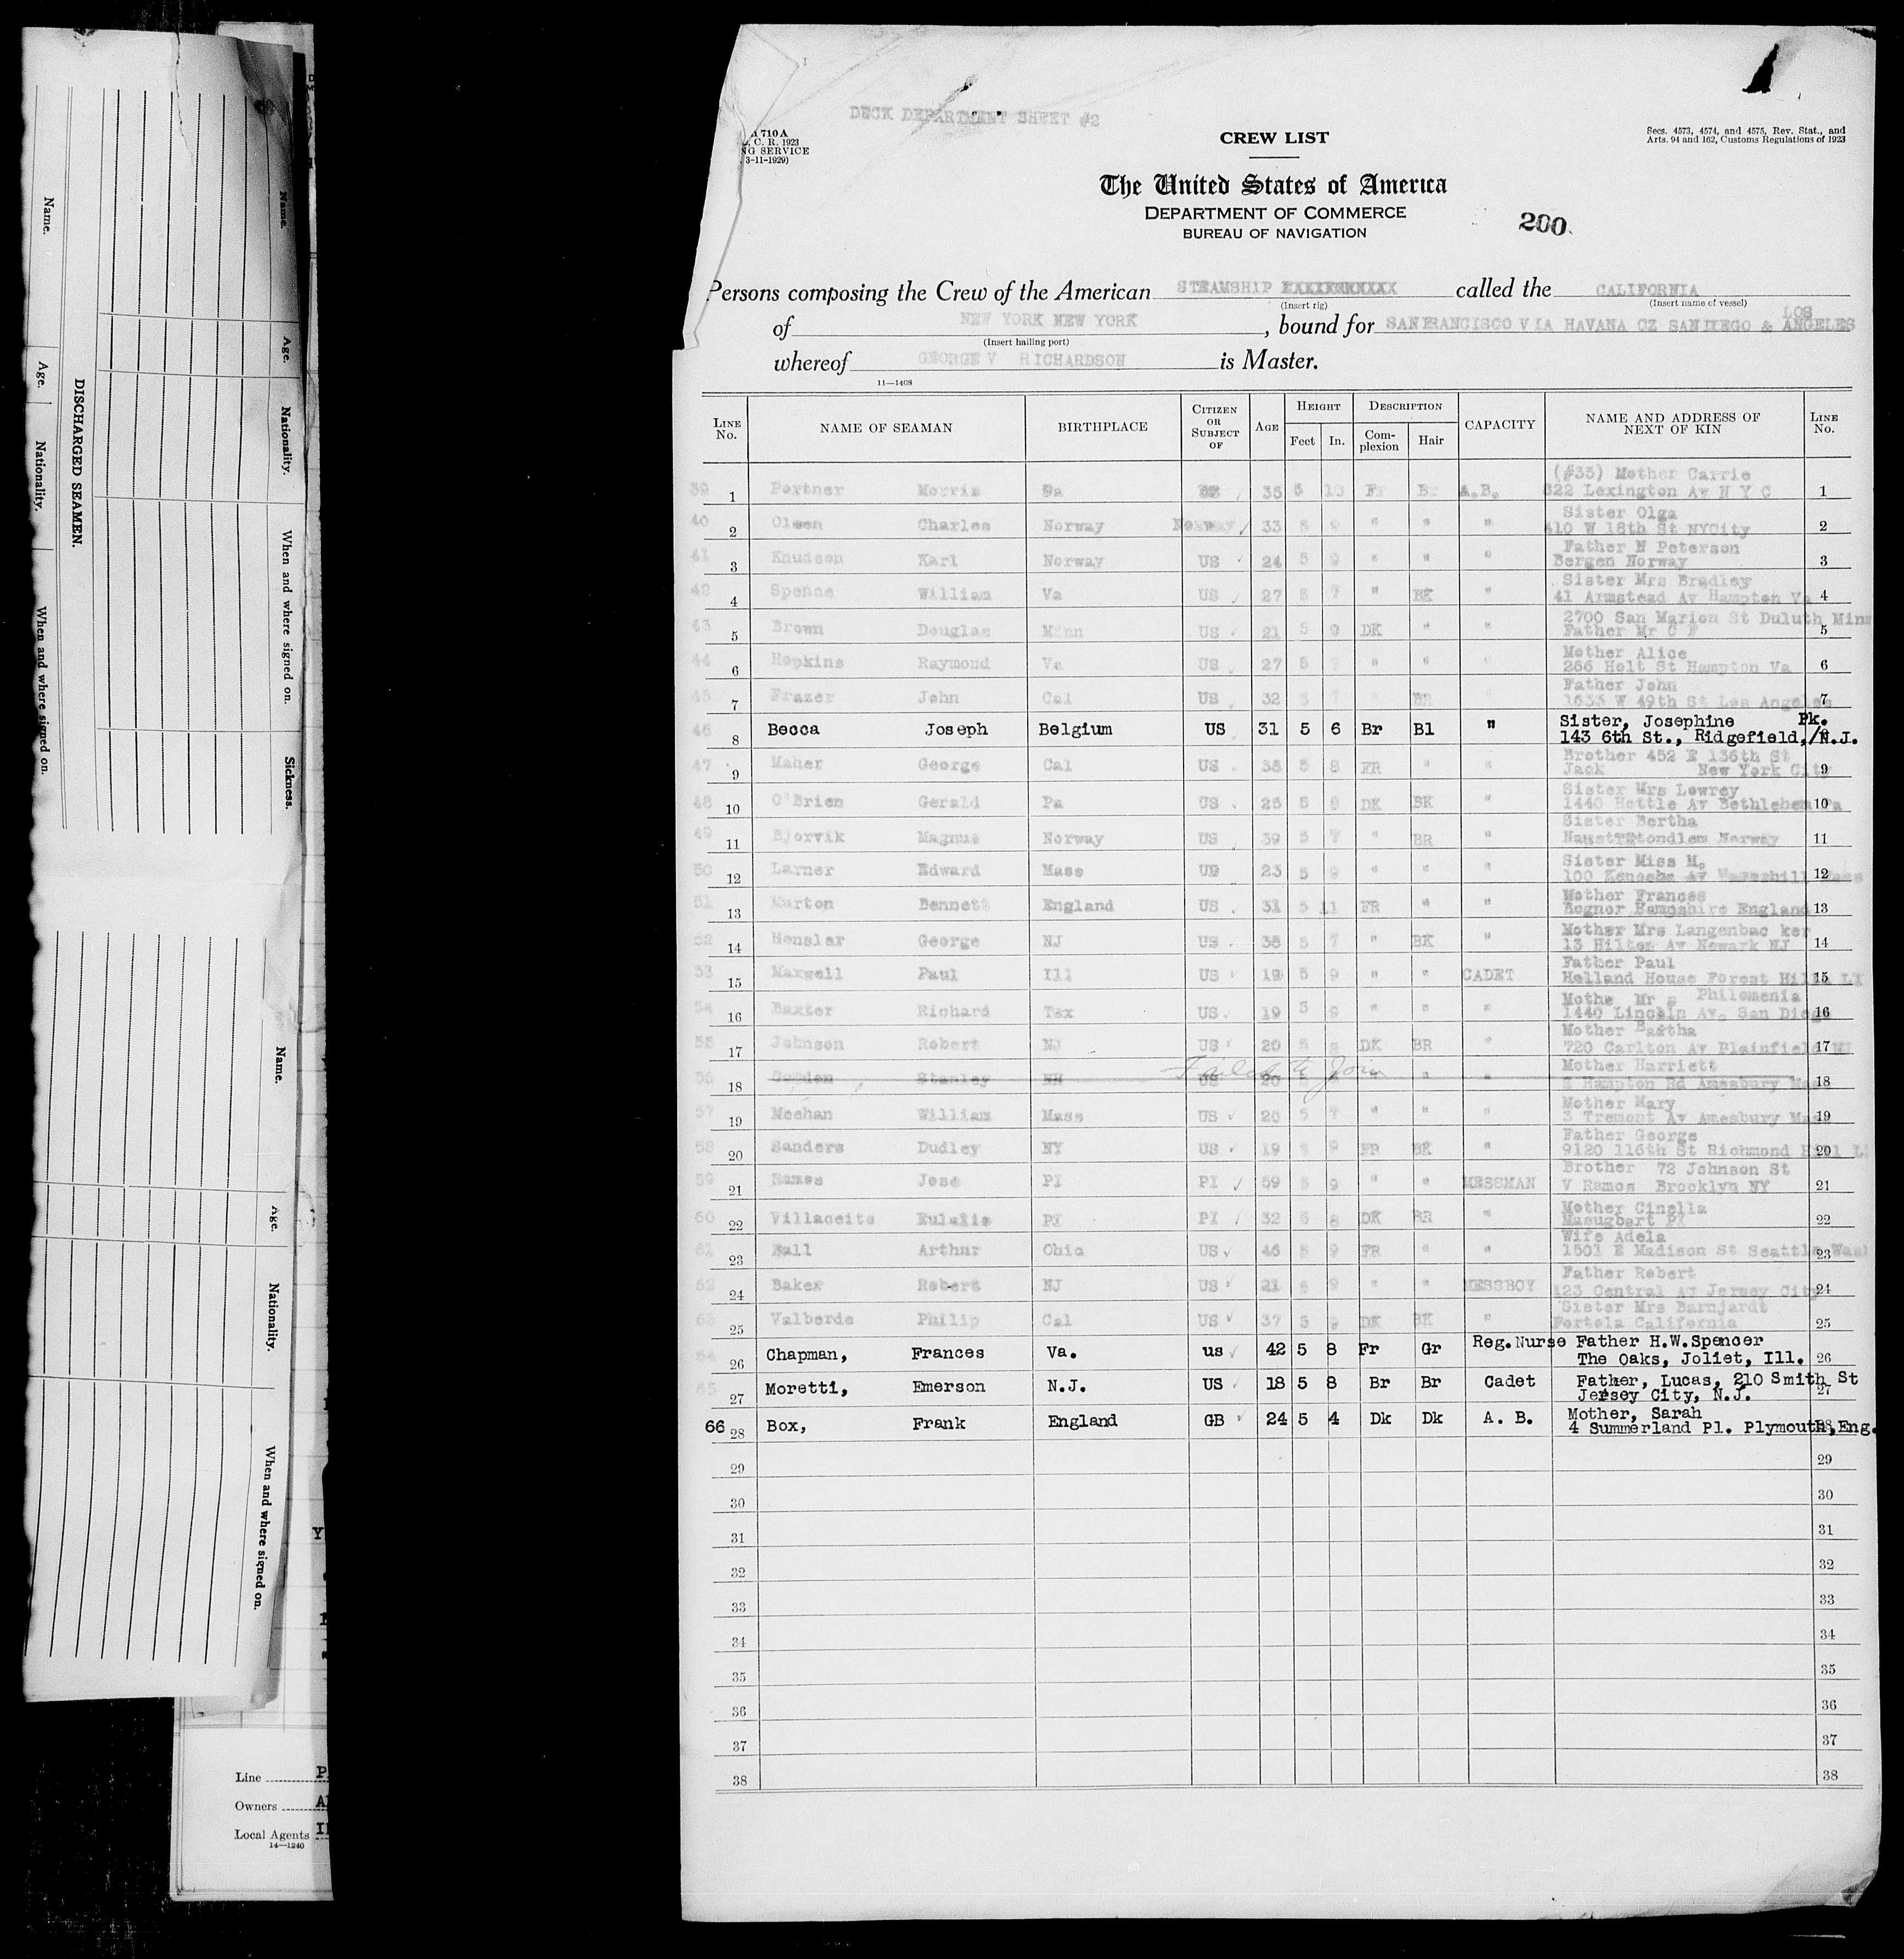 DECK DEPARTMENT SHEET #2
710 A
C. R. 1923
SERVICE
3-11-1929)
CREW LIST
Secs. 4573, 4574, and 4575, Rev. Stat., and
Arts. 94 and 162, Customs Regulations of 1923
The United States of America
DEPARTMENT OF COMMERCE
BUREAU OF NAVIGATION
200
Persons composing the Crew of the American STEAMSHIP called the CALIFORNIA
(Insert rig) (Insert name of vessel)
of NEW YORK NEW YORK, bound for SANFRANCISCO VIA HAVANA CZ SANDIEGO & LOS ANGELES
(Insert hailing port)
whereof GEORGE V RICHARDSON is Master.
11—1408
LINE No. NAME OF SEAMAN BIRTHPLACE CITIZEN OR SUBJECT OF AGE HEIGHT Feet In. DESCRIPTION Complexion Hair CAPACITY NAME AND ADDRESS OF NEXT OF KIN LINE No.
39 1 Portner Morris Pa 35 5 10 Fr Br A.B. (#33) Mother Carrie 822 Lexington Av N Y C 1
40 2 Olsen Charles Norway Norway 33 5 9 " " " Sister Olga 410 W 18th St NYCity 2
41 3 Knudsen Karl Norway US 24 5 9 " " " Father N Peterson Bergen Norway 3
42 4 Spence William Va US 27 5 7 " BK " Sister Mrs Bradley 41 Armstead Av Hampton Va 4
43 5 Brown Douglas Minn US 21 5 9 DK " " 2700 San Marion St Duluth Minn Father Mr C F 5
44 6 Hopkins Raymond Va US 27 5 7 " " " Mother Alice 266 Holt St Hampton Va 6
45 7 Frazer John Cal US 32 5 7 " BR " Father John 1635 W 49th St Los Angeles 7
46 8 Becca Joseph Belgium US 31 5 6 Br Bl " Sister, Josephine Pk. 143 6th St., Ridgefield,/N.J.
47 9 Maher George Cal US 38 5 8 FR " " Brother 452 E 136th St Jack New York City 9
48 10 O'Brien Gerald Pa US 25 5 8 DK BK " Sister Mrs Lowrey 1440 Hottle Av Bethlehem Pa 10
49 11 Bjorvik Magnus Norway US 39 5 7 " BR " Sister Bertha Norway 11
50 12 Larner Edward Mass US 23 5 9 " " " Sister Miss M. 100 Kenoche Av Haverhill Mass 12
51 13 Murton Bennett England US 31 5 11 FR " " Mother Frances Bognor Hampshire England 13
52 14 Hensler George NJ US 38 5 7 " BK " Mother Mrs Langenbac ker 13 Hilton Av Newark NJ 14
53 15 Maxwell Paul Ill US 19 5 9 " " CADET Father Paul Holland House Forest Hills LI 15
54 16 Baxter Richard Tex US 19 5 9 " " " Mothe Mr s Philomenia 1440 Lincoln Av. San Diego 16
55 17 Johnson Robert NJ US 20 5 8 DK BR " Mother Bertha 720 Carlton Av Plainfield NJ 17
56 18 Stanley NH US 20 " " " Mother Harriett Hampton Rd Amesbury Mass 18
Failed to Join
57 19 Meehan William Mass US 20 5 7 " " " Mother Mary 3 Tremont Av Amesbury Mass 19
58 20 Sanders Dudley NY US 19 5 9 FR BK " Father George 9120 116th St Richmond Hill LI 20
59 21 Ramos Jose PI PI 59 5 9 " " MESSMAN Brother 72 Johnson St V Ramos Brooklyn NY 21
60 22 Villaceite Eulalie PI PI 32 5 8 DK BR " Mother Cinella PI 22
61 23 Hall Arthur Ohio US 46 5 9 FR " " Wife Adela 1501 E Madison St Seattle Wash 23
62 24 Baker Robert NJ US 21 5 9 " " MESSBOY Father Robert 123 Central Av Jersey City 24
63 25 Valberde Philip Cal US 37 5 9 DK BK " Sister Mrs Barnjardt Portola California 25
64 26 Chapman, Frances Va. us 42 5 8 Fr Gr Reg.Nurse Father H.W.Spencer The Oaks, Joliet, Ill. 26
65 27 Moretti, Emerson N.J. US 18 5 8 Br Br Cadet Father, Lucas, 210 Smith St Jersey City, N.J. 27
66 28 Box, Frank England GB 24 5 4 Dk Dk A. B. Mother, Sarah 4 Summerland Pl. Plymouth,Eng. 28
29 29
30 30
31 31
32 32
33 33
34 34
35 35
36 36
37 37
38 38
DISCHARGED SEAMEN.
Name. Age. Nationality. When and where signed on. Sickness.
Name. Age. Nationality. When and where signed on.
Name. Age. Nationality. When and where signed on.
Line
Owners
Local Agents
14—1240